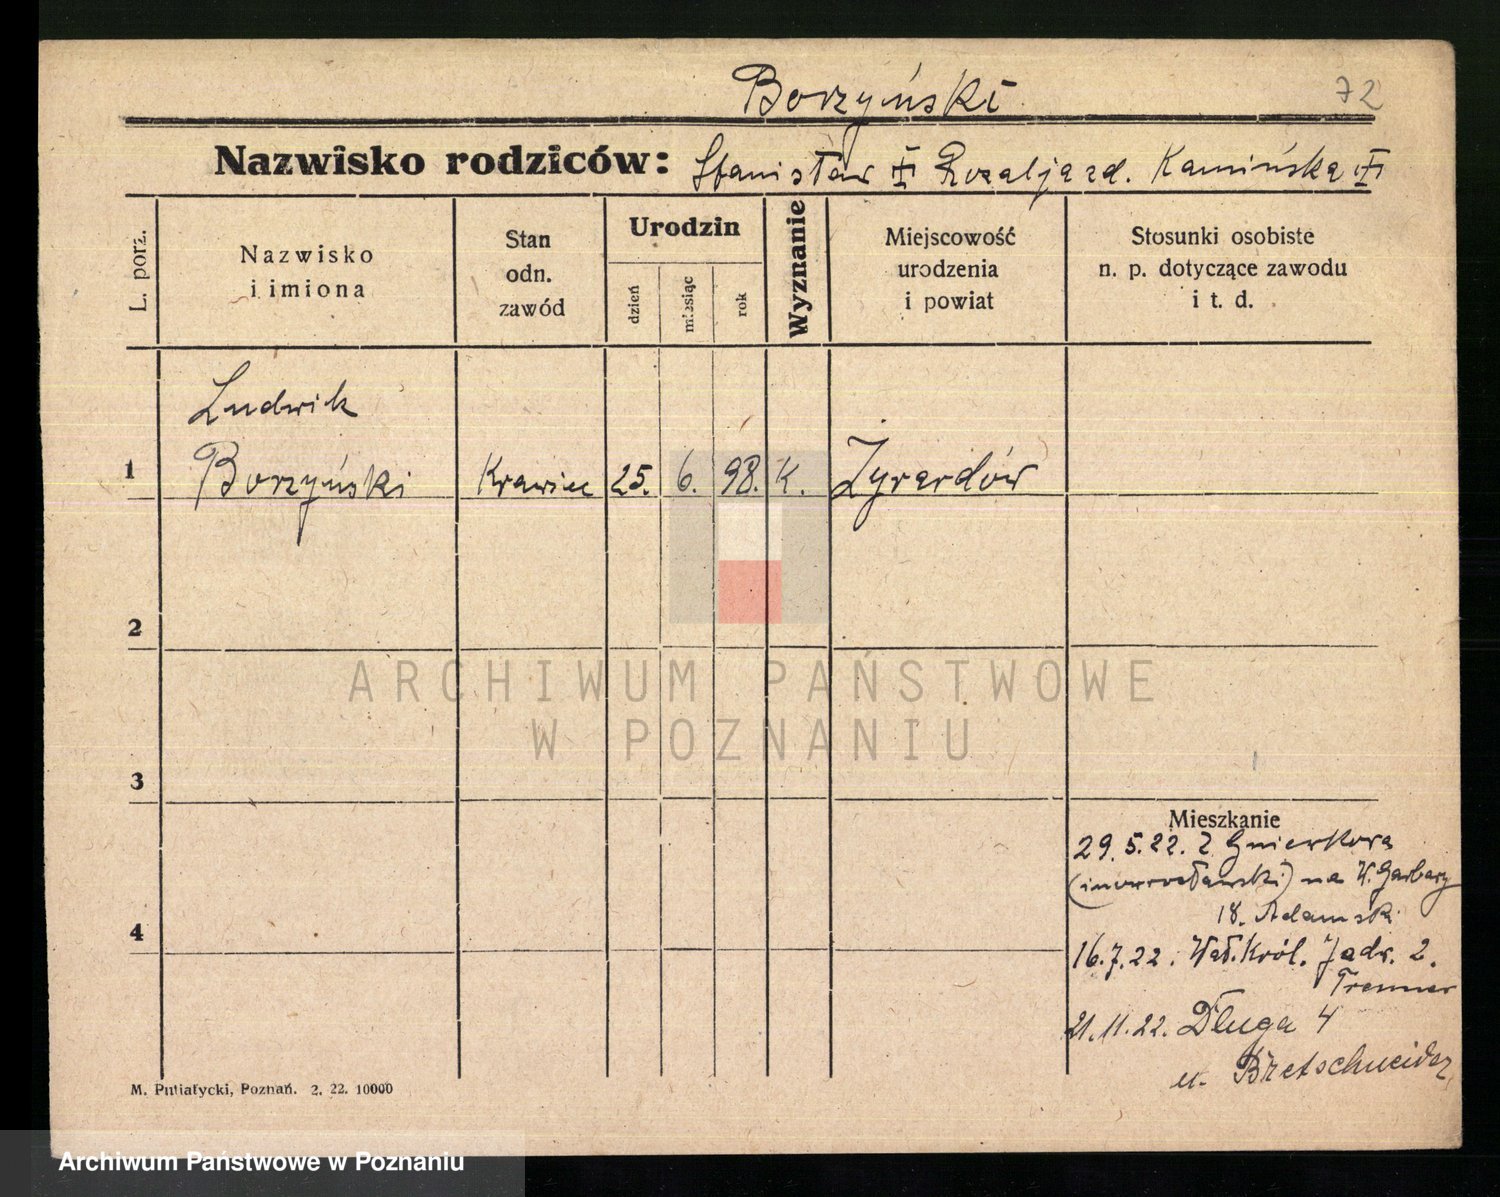 Borzyński
72
Nazwisko rodziców: Stanisław Rozalja zd. Kamińska
L. porz.
Nazwisko
i imiona
Stan
odn.
zawód
Urodzin
dzień
miesiąc
rok
Wyznanie
Miejscowość
urodzenia
i powiat
Stosunki osobiste
n. p. dotyczące zawodu
i t. d.
Ludwik
1 Borzyński Krawiec 25. 6. 98. K. Żyrardów
2
3
4
Mieszkanie
29.5.22. z Gniewkowa
(inowrocławski) na W. Garbary
18. Adamski
16.7.22. Wał. Król. Jadw. 2.
21.11.22. Długa 4
u. Bretschneider
M. Putiatycki, Poznań. 2. 22. 10000
ARCHIWUM PAŃSTWOWE
W POZNANIU
Archiwum Państwowe w Poznaniu